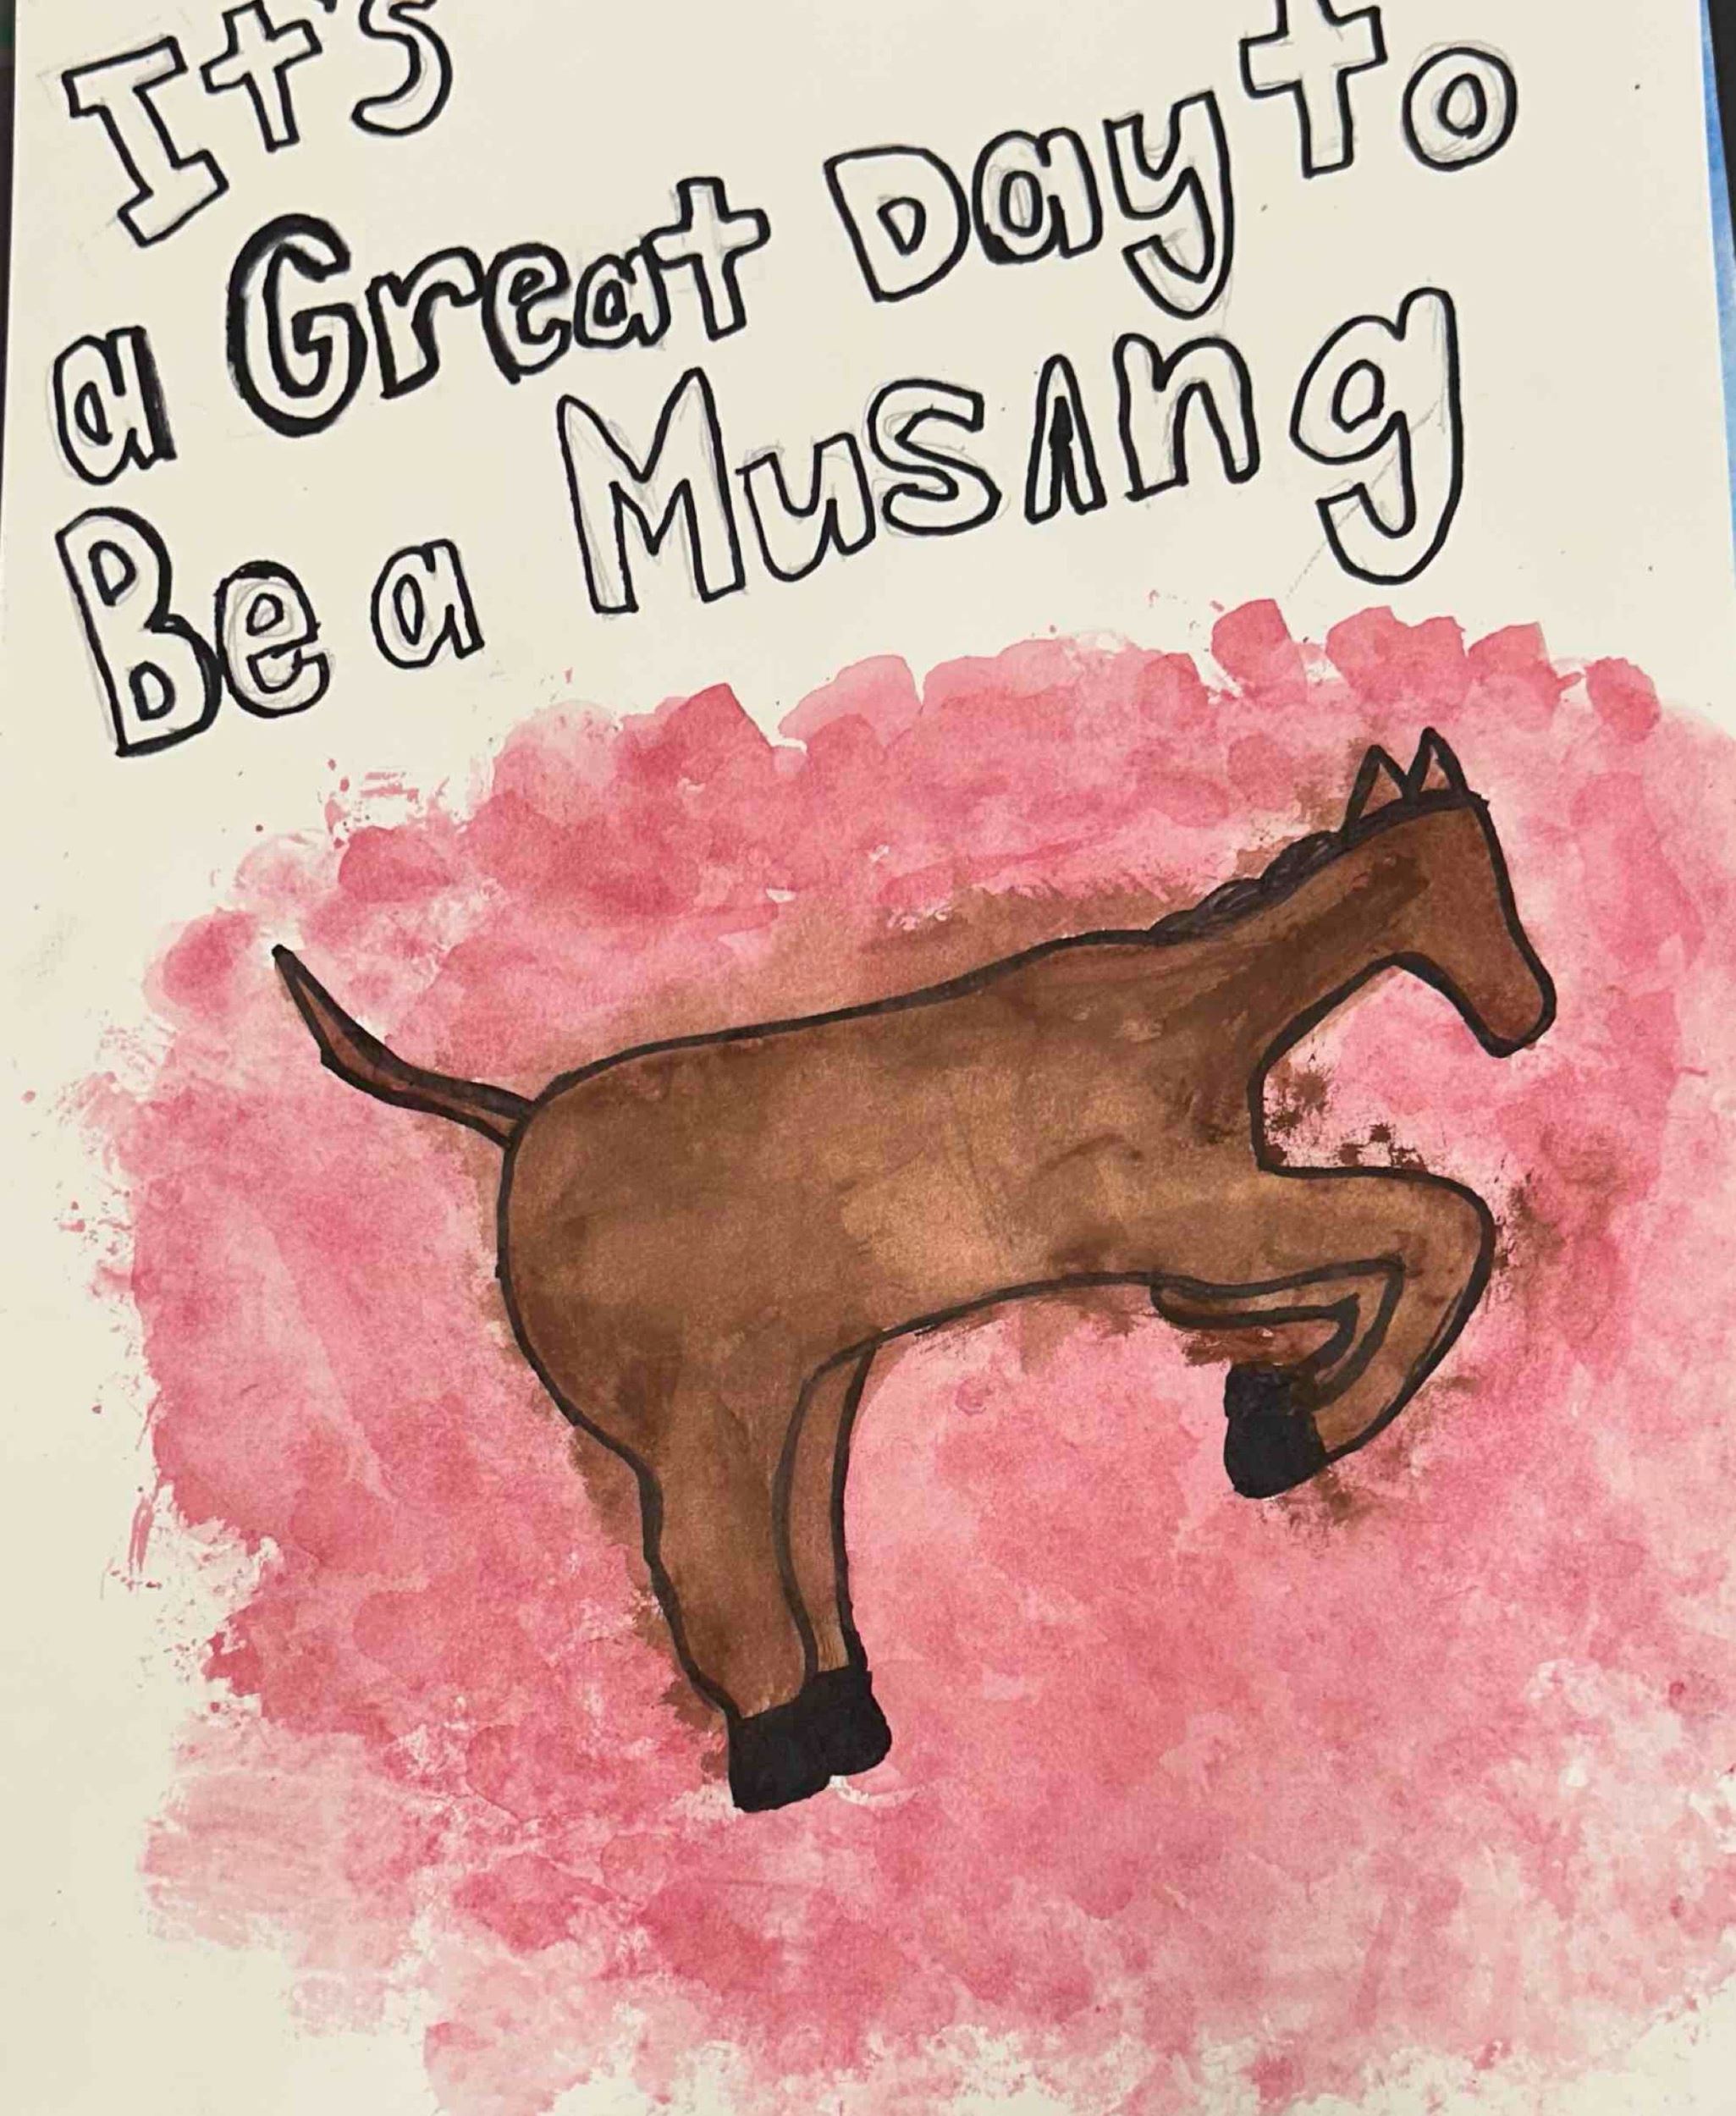 It's
a Great Day to
Be a Musang